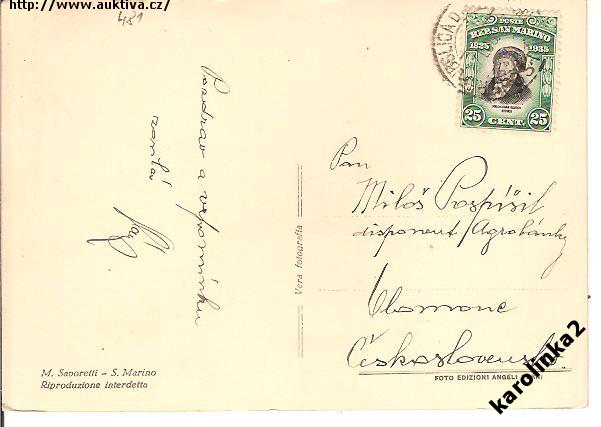 http://www.auktiva.cz/
481
UBBLICA D
POSTE
REP. SAN MARINO
1835 1935
25 CENT 25
Pozdrav a vzpomínku
Pan
Miloš Pospíšil
disponent Agrobanky
Olomouc
Československo
Vera fotografia
M. Savoretti - S. Marino
Riproduzione interdetta
FOTO EDIZIONI ANGELI
karolinka2